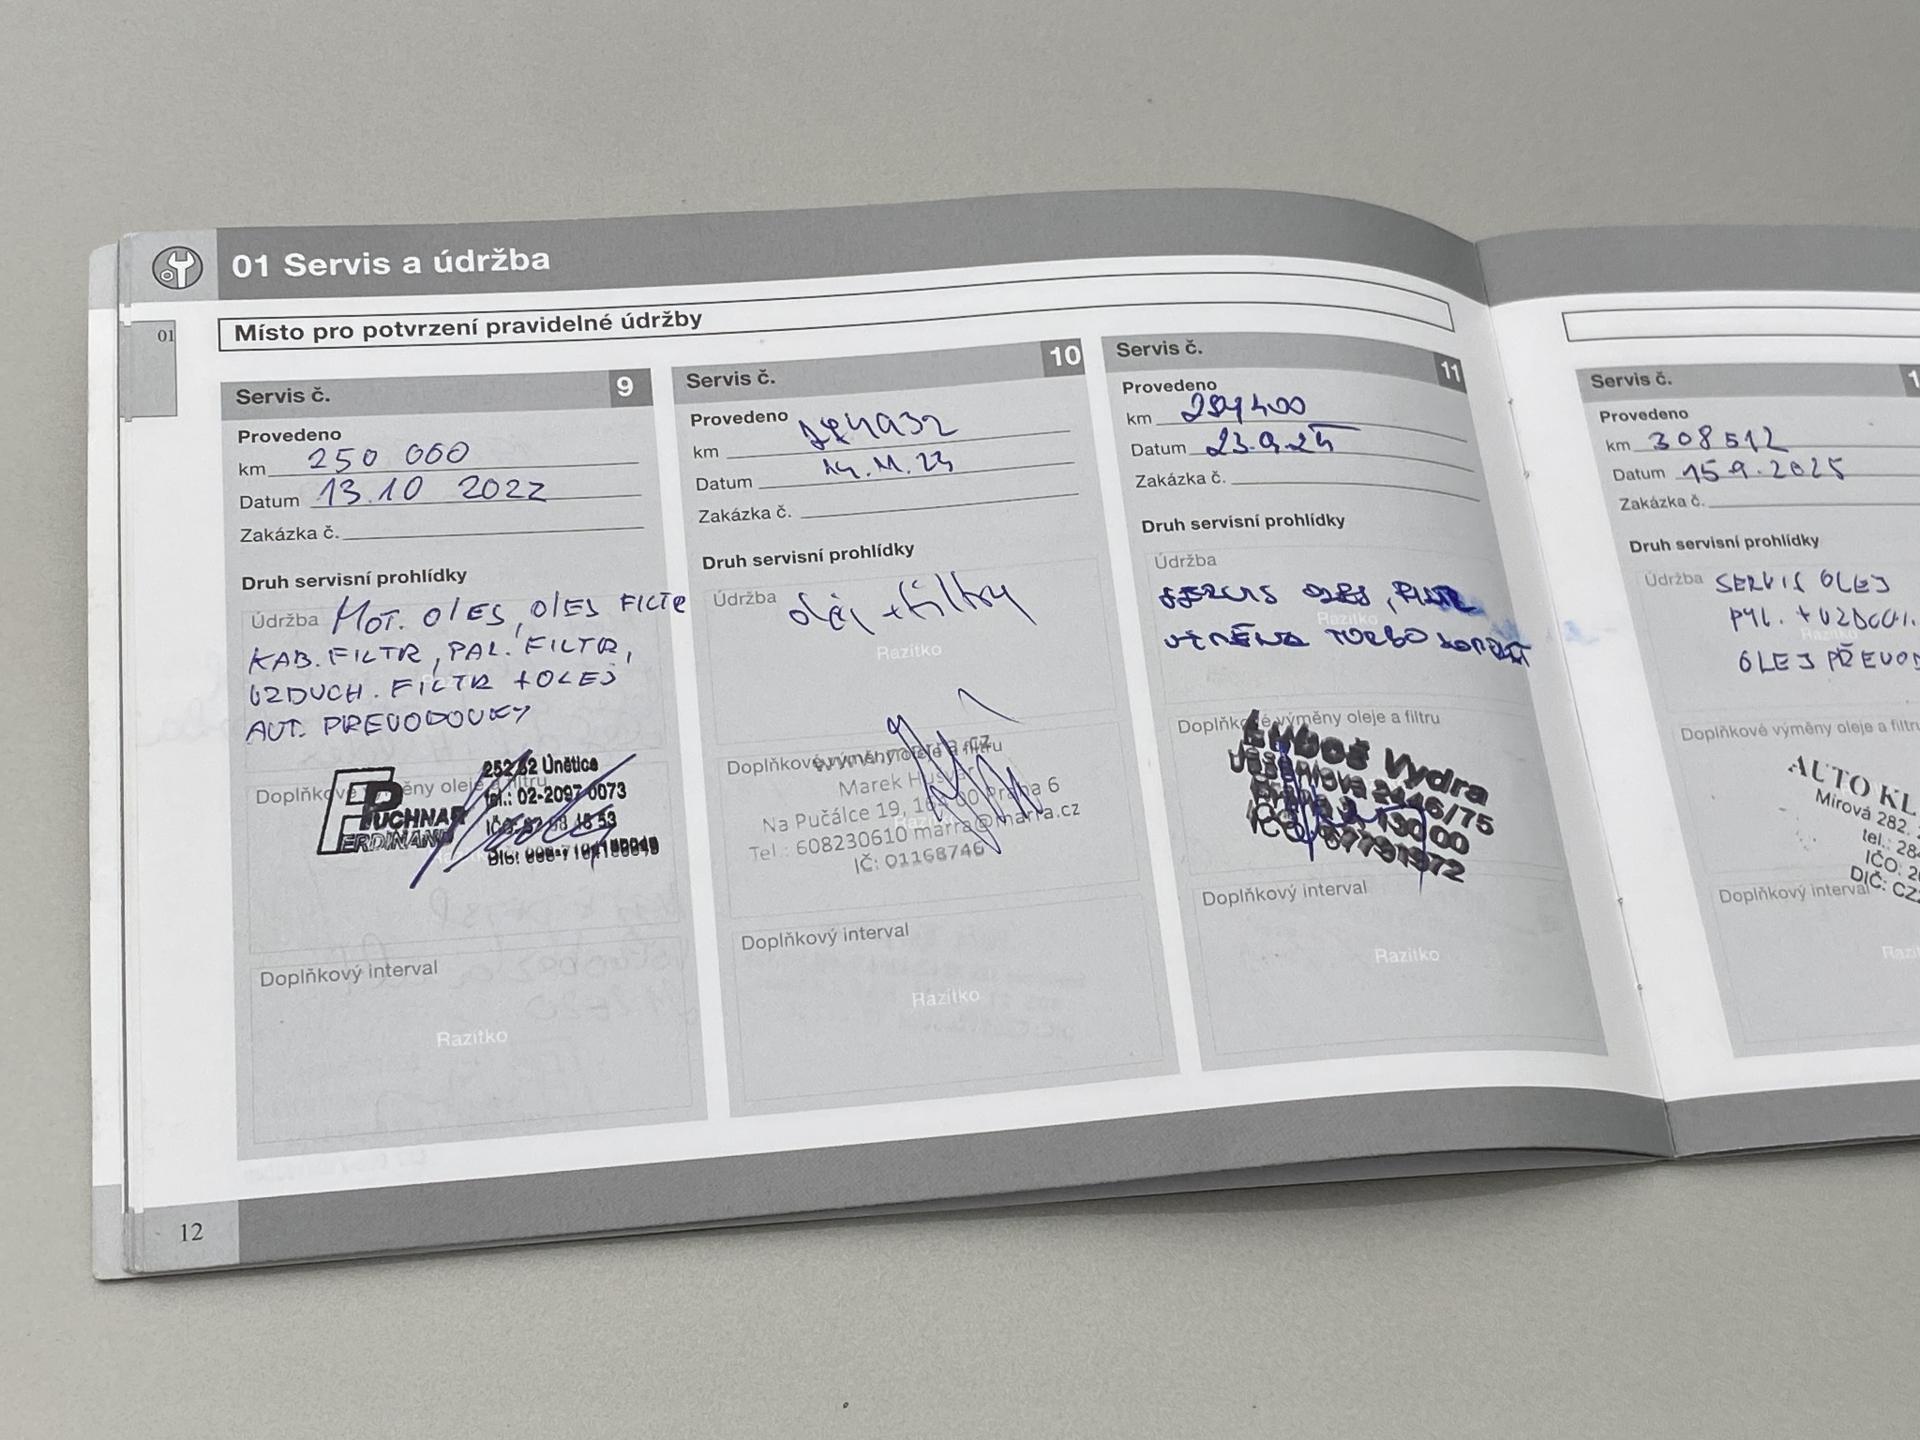 01 Servis a údržba
01
Místo pro potvrzení pravidelné údržby
Servis č. 9
Provedeno
km 250 000
Datum 13.10 2022
Zakázka č.
Druh servisní prohlídky
Údržba MOT. OLEJ, OLEJ FILTR
KAB. FILTR, PAL. FILTR,
VZDUCH. FILTR + OLEJ
AUT. PREVODOVKY
Doplňkové výměny oleje a filtru
PUCHNAR
FERDINAND
252 62 Únětice
tel.: 02-2097 0073
Razítko
Doplňkový interval
Razítko
Servis č. 10
Provedeno
km
Datum 14.11.23
Zakázka č.
Druh servisní prohlídky
Údržba olej + filtry
Razítko
Doplňkové výměny oleje a filtru
www.marra.cz
Marek
Na Pučálce 19, Praha 6
Tel.: 608230610 marra@marra.cz
IČ: 01168746
Doplňkový interval
Razítko
Servis č. 11
Provedeno
km
Datum 23.9.24
Zakázka č.
Druh servisní prohlídky
Údržba
SERVIS OLEJ, FILTR
Razítko
VÝMĚNA TURBO
Doplňkové výměny oleje a filtru
Luboš Vydra
Jeseniova 2446/75
Praha 3 13000
Doplňkový interval
Razítko
Servis č.
Provedeno
km 308 512
Datum 15.9.2025
Zakázka č.
Druh servisní prohlídky
Údržba SERVIS OLEJ
PYL. + VZDUCH.
Razítko
OLEJ PŘEVOD
Doplňkové výměny oleje a filtru
AUTO KL
Mírová 282,
tel.: 284
IČO: 2
DIČ: CZ
Doplňkový interval
12